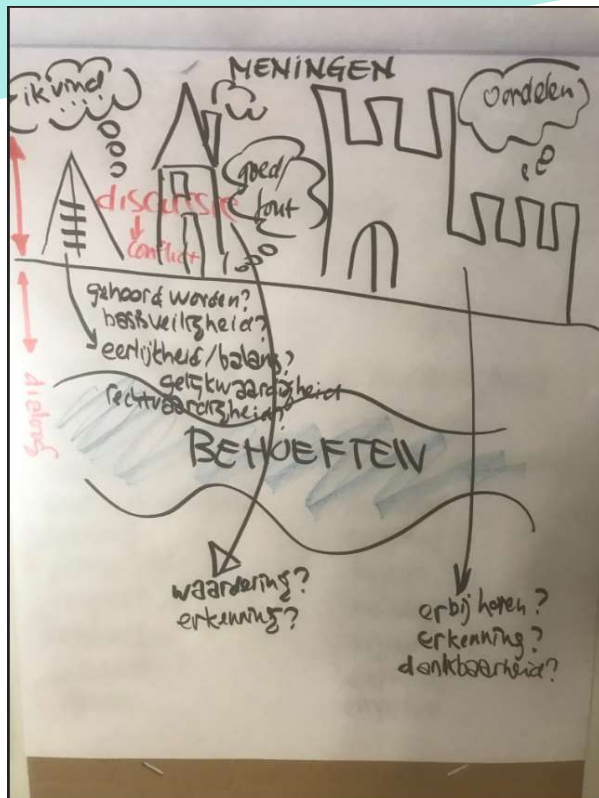 MENINGEN
ik vind
oordelen
goed/
fout
discussie
conflict
gehoord worden?
basisveiligheid?
eerlijkheid/balans?
gelijkwaardigheid
rechtvaardigheid?
dialoog
BEHOEFTEN
waardering?
erkenning?
erbij horen?
erkenning?
dankbaarheid?